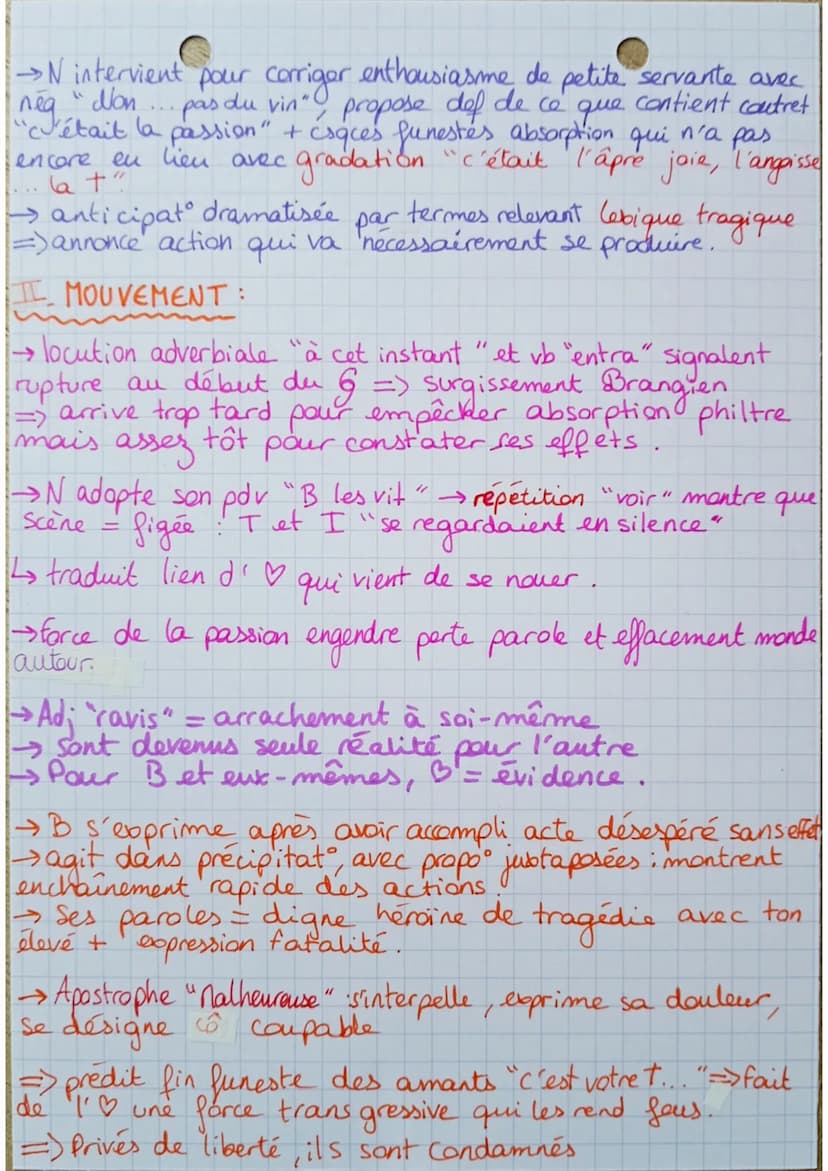 → N intervient pour corriger enthousiasme de petite servante avec
nég "Non ... pas du vin", propose def de ce que contient coutret
"c'était la passion" + csqces funestes absorption qui n'a pas
encore eu lieu avec gradation "c'était l'âpre joie, l'angoisse
... la †"
→ anticipat° dramatisée par termes relevant lexique tragique
=> annonce action qui va nécessairement se produire.
II. MOUVEMENT :
→ locution adverbiale "à cet instant" et vb "entra" signalent
rupture au début du § => surgissement Brangien
=> arrive trop tard pour empêcher absorption philtre
mais assez tôt pour constater ses effets.
→ N adopte son pdv "B les vit" → répétition "voir" montre que
scène = figée : T et I "se regardaient en silence"
↳ traduit lien d'♡ qui vient de se nouer.
→ force de la passion engendre perte parole et effacement monde
autour.
→ Adj "ravis" = arrachement à soi-même
→ sont devenus seule réalité pour l'autre
→ Pour B et eux-mêmes, ♡ = évidence.
→ B s'exprime après avoir accompli acte désespéré sans effet
→ agit dans précipitat°, avec propo° juxtaposées : montrent
enchaînement rapide des actions.
→ Ses paroles = digne héroïne de tragédie avec ton
élevé + expression fatalité.
→ Apostrophe "Malheureuse" : s'interpelle, exprime sa douleur,
se désigne cô coupable
=> prédit fin funeste des amants "c'est votre †..." => fait
de l'♡ une force transgressive qui les rend fous.
=> Privés de liberté, ils sont condamnés